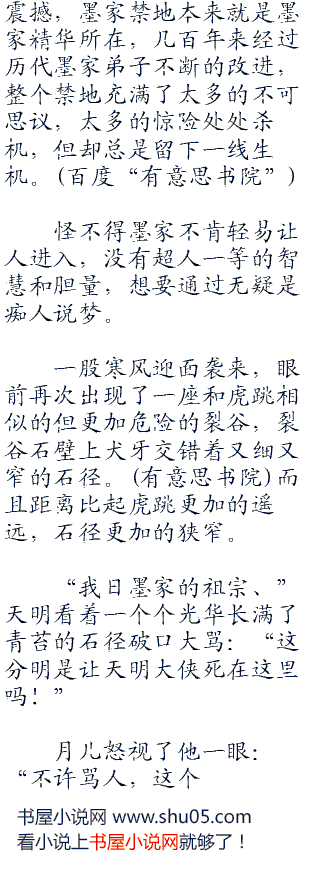 震撼，墨家禁地本来就是墨
家精华所在，几百年来经过
历代墨家弟子不断的改进，
整个禁地充满了太多的不可
思议，太多的惊险处处杀
机，但却总是留下一线生
机。(百度“有意思书院”)
怪不得墨家不肯轻易让
人进入，没有超人一等的智
慧和胆量，想要通过无疑是
痴人说梦。
一股寒风迎面袭来，眼
前再次出现了一座和虎跳相
似的但更加危险的裂谷，裂
谷石壁上犬牙交错着又细又
窄的石径。(有意思书院)而
且距离比起虎跳更加的遥
远，石径更加的狭窄。
“我日墨家的祖宗、”
天明看着一个个光华长满了
青苔的石径破口大骂：“这
分明是让天明大侠死在这里
吗！”
月儿怒视了他一眼：
“不许骂人，这个
书屋小说网 www.shu05.com
看小说上书屋小说网就够了！